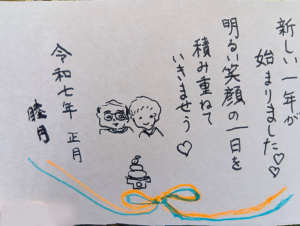 新しい一年が
始まりました♡♡
明るい笑顔の一日を
積み重ねて
いきませう♡
令和七年 正月
睦月